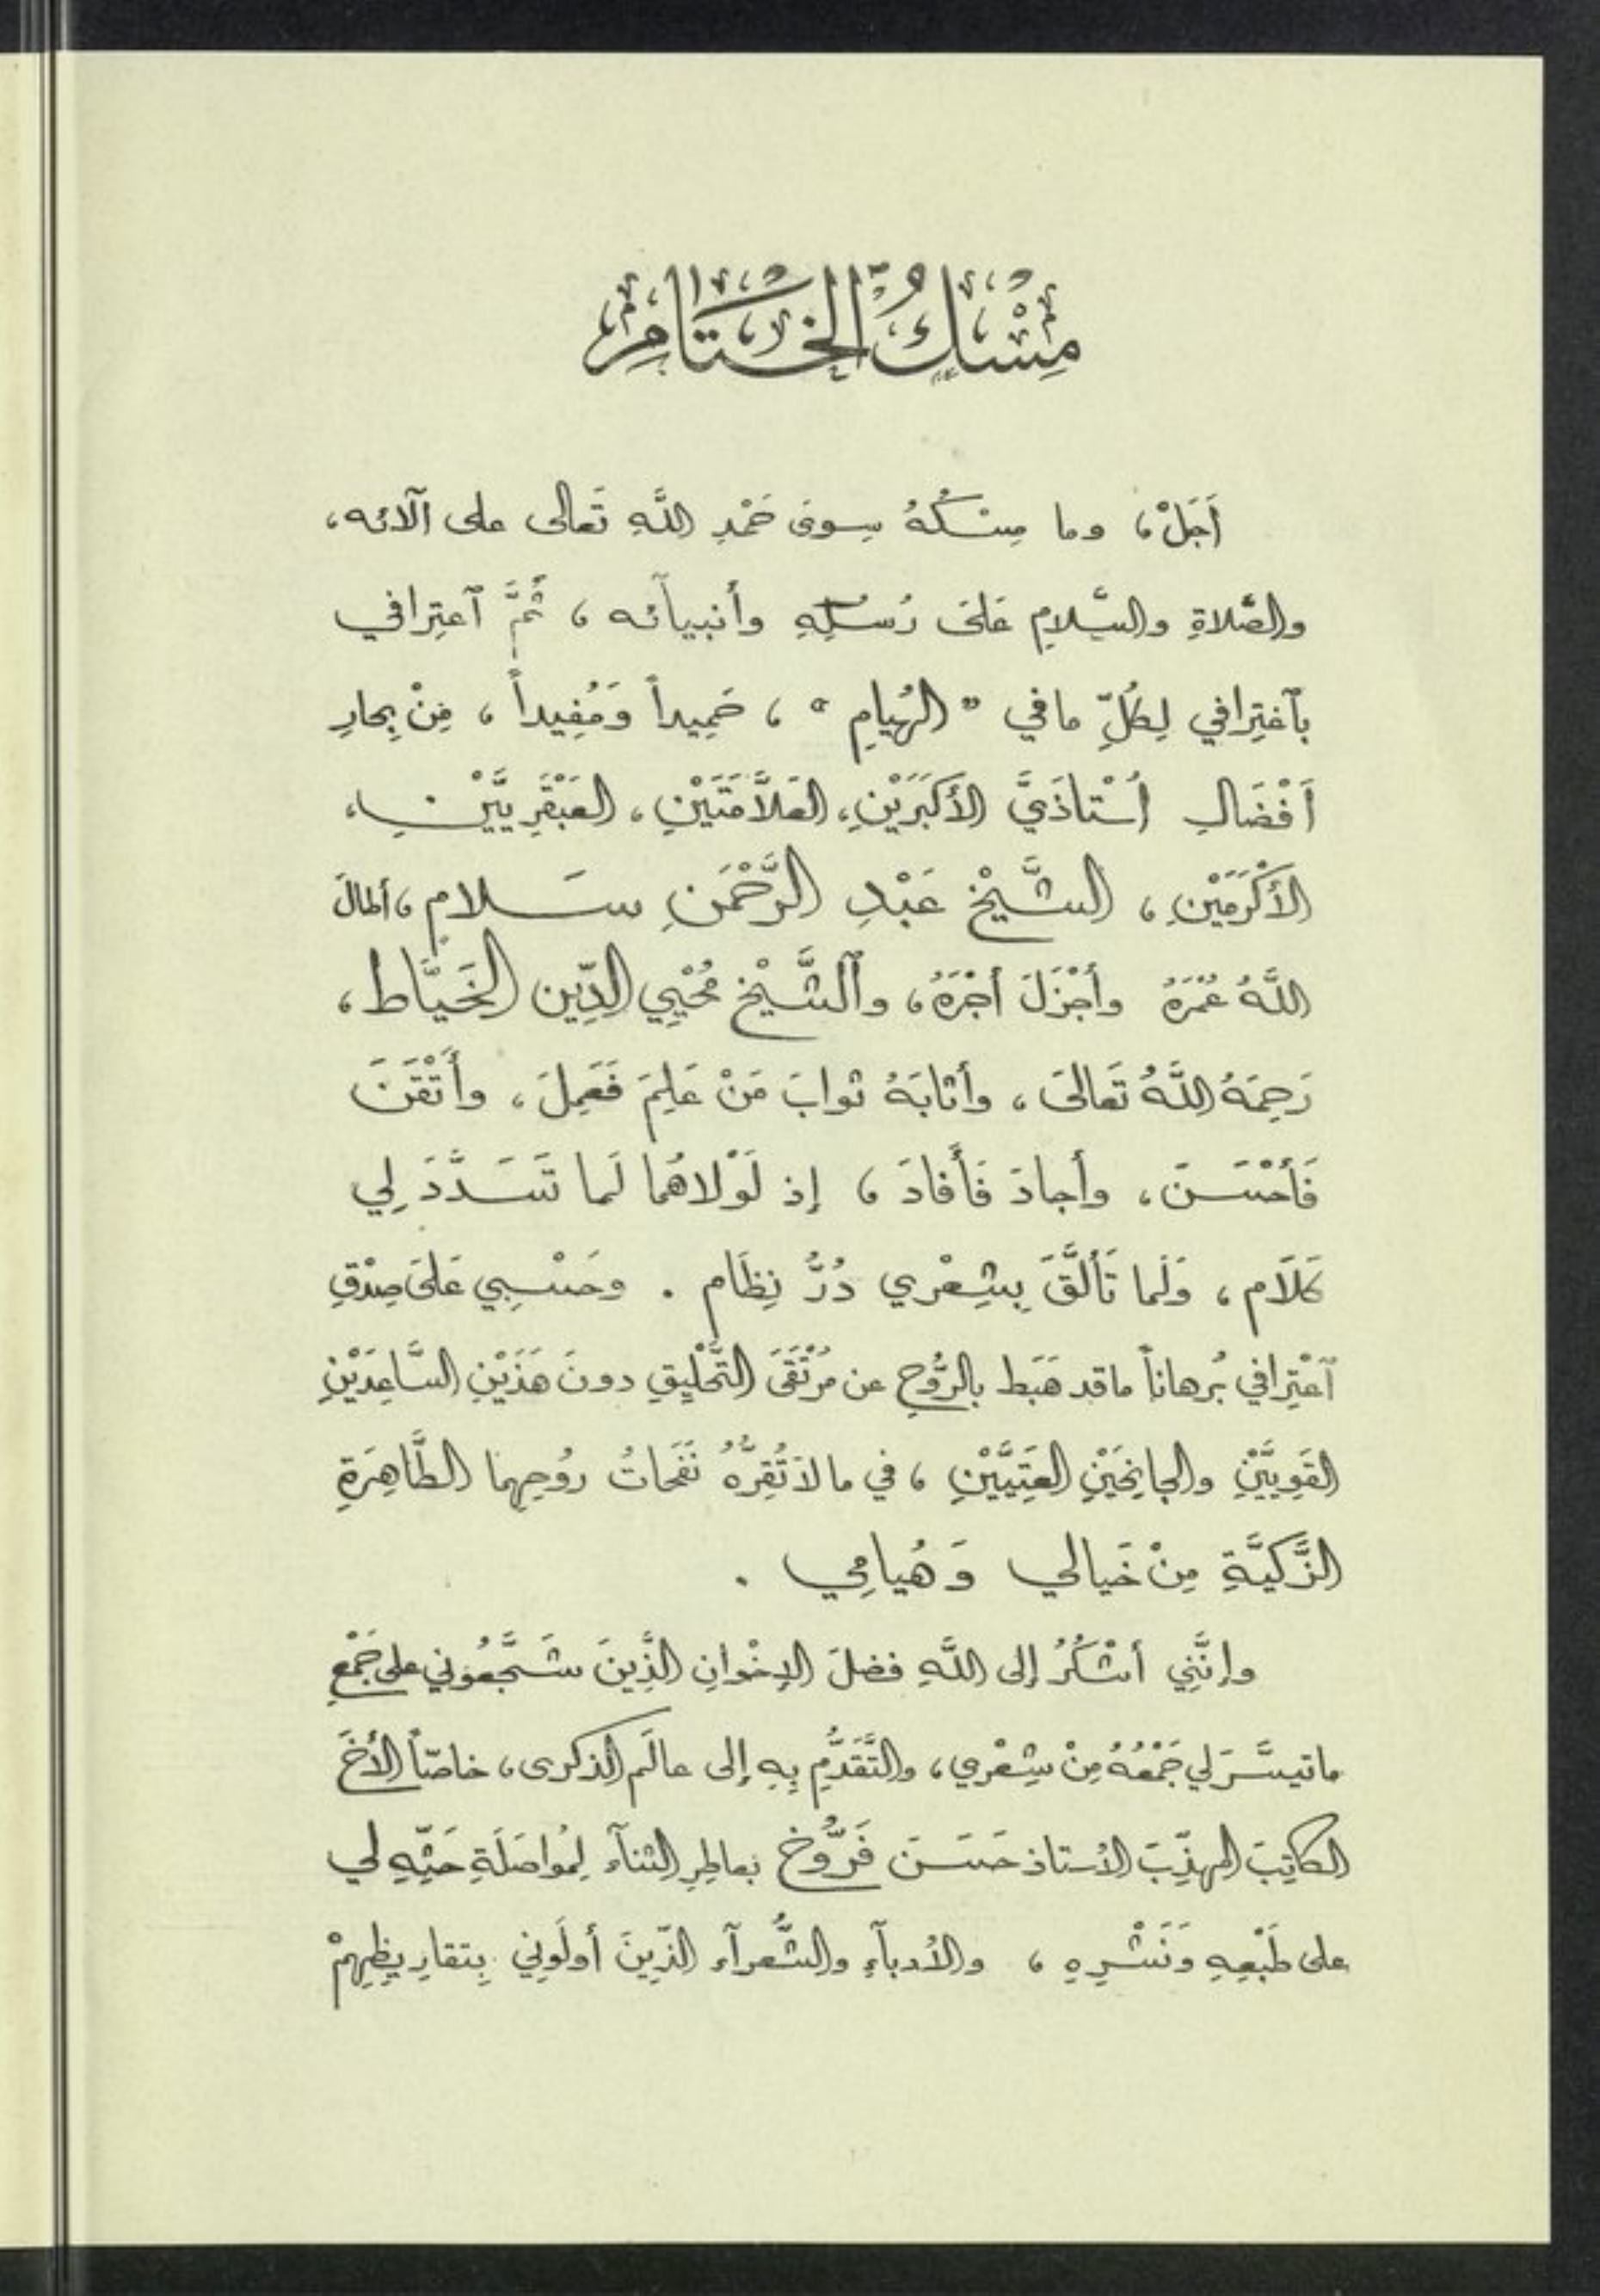 مِسْكُ الخِتَامِ
أَجَلْ، وما مِسْكُهُ سِوى حَمْدِ اللّهِ تَعالى على آلائه،
والصَّلاةِ والسَّلامِ عَلَى رُسُلِهِ وأنبيآئه، ثُمَّ ٱعتِرافي
بٱغتِرافي لِكُلِّ ما في "الهُيامِ"، حَمِيداً وَمُفِيداً، مِنْ بِحارِ
أَفْضَالِ أُسْتاذَيَّ الأَكبَرَيْنِ، العَلاَّمَتَيْنِ، العَبْقَرِيَّيْنِ،
الأَكْرَمَيْنِ، الشَّيْخِ عَبْدِ الرَّحْمَنِ سَلامِ، أطالَ
اللّهُ عُمْرَهُ وأَجْزَلَ أَجْرَهُ، وٱلشَّيْخِ مُحْيِي الدِّينِ الخَيَّاط،
رَحِمَهُ اللّهُ تَعَالىَ، وأثابَهُ ثوابَ مَنْ عَلِمَ فَعَمِلَ، وأَتْقَنَ
فَأَحْسَنَ، وأجادَ فَأَفادَ، إذ لَوْلاهُما لَما تَسَدَّدَ لِي
كَلاَم، وَلَما تَأَلَّقَ بِشِعْرِي دُرُّ نِظَام. وحَسْبِي عَلَى صِدْقِ
ٱعْتِرافي بُرهاناً ما قد هَبَط بالرُّوحِ عن مُرْتَقَىَ التَّحْلِيقِ دونَ هَذَيْنِ السَّاعِدَيْنِ
القَوِيَّيْنِ والجانِحَيْنِ العَتِيَّيْنِ، في ما لاَ تُقِرُّهُ نَفَحَاتُ رُوحِهِما الطَّاهِرَةِ
الزَّكيَّةِ مِنْ خَيالي وَهُيامِي.
وإنَّنِي أشْكُرُ إلى اللّهِ فضلَ الإخْوانِ الَّذِينَ شَجَّعُوني على جَمْعِ
ما تيسَّرَ لي جَمْعُهُ مِنْ شِعْرِي، والتَّقَدُّمِ بِهِ إلى عالَمِ الذكرى، خاصّاً الأَخَ
الكاتِبَ المهذّبَ الأستاذ حَسَنَ فَرُّوخ بعاطِرِ الثنآءِ لِمُواصَلَةِ حَثِّهِ لي
على طَبْعِهِ وَنَشْرِهِ، والأدبآءِ والشُّعرآءِ الذّينَ أولَوني بِتقارِيظِهِمْ